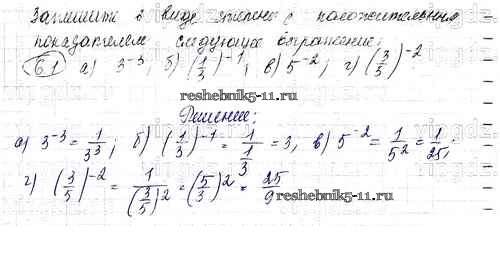 Запишите в виде степени с положительным
показателем следующие выражения:
61 а) 3⁻³; б) (1/3)⁻¹; в) 5⁻²; г) (3/5)⁻²
reshebnik5-11.ru
Решение:
а) 3⁻³ = 1/3³; б) (1/3)⁻¹ = 1/(1/3) = 3, в) 5⁻² = 1/5² = 1/25;
г) (3/5)⁻² = 1/(3/5)² = (5/3)² = 25/9
reshebnik5-11.ru